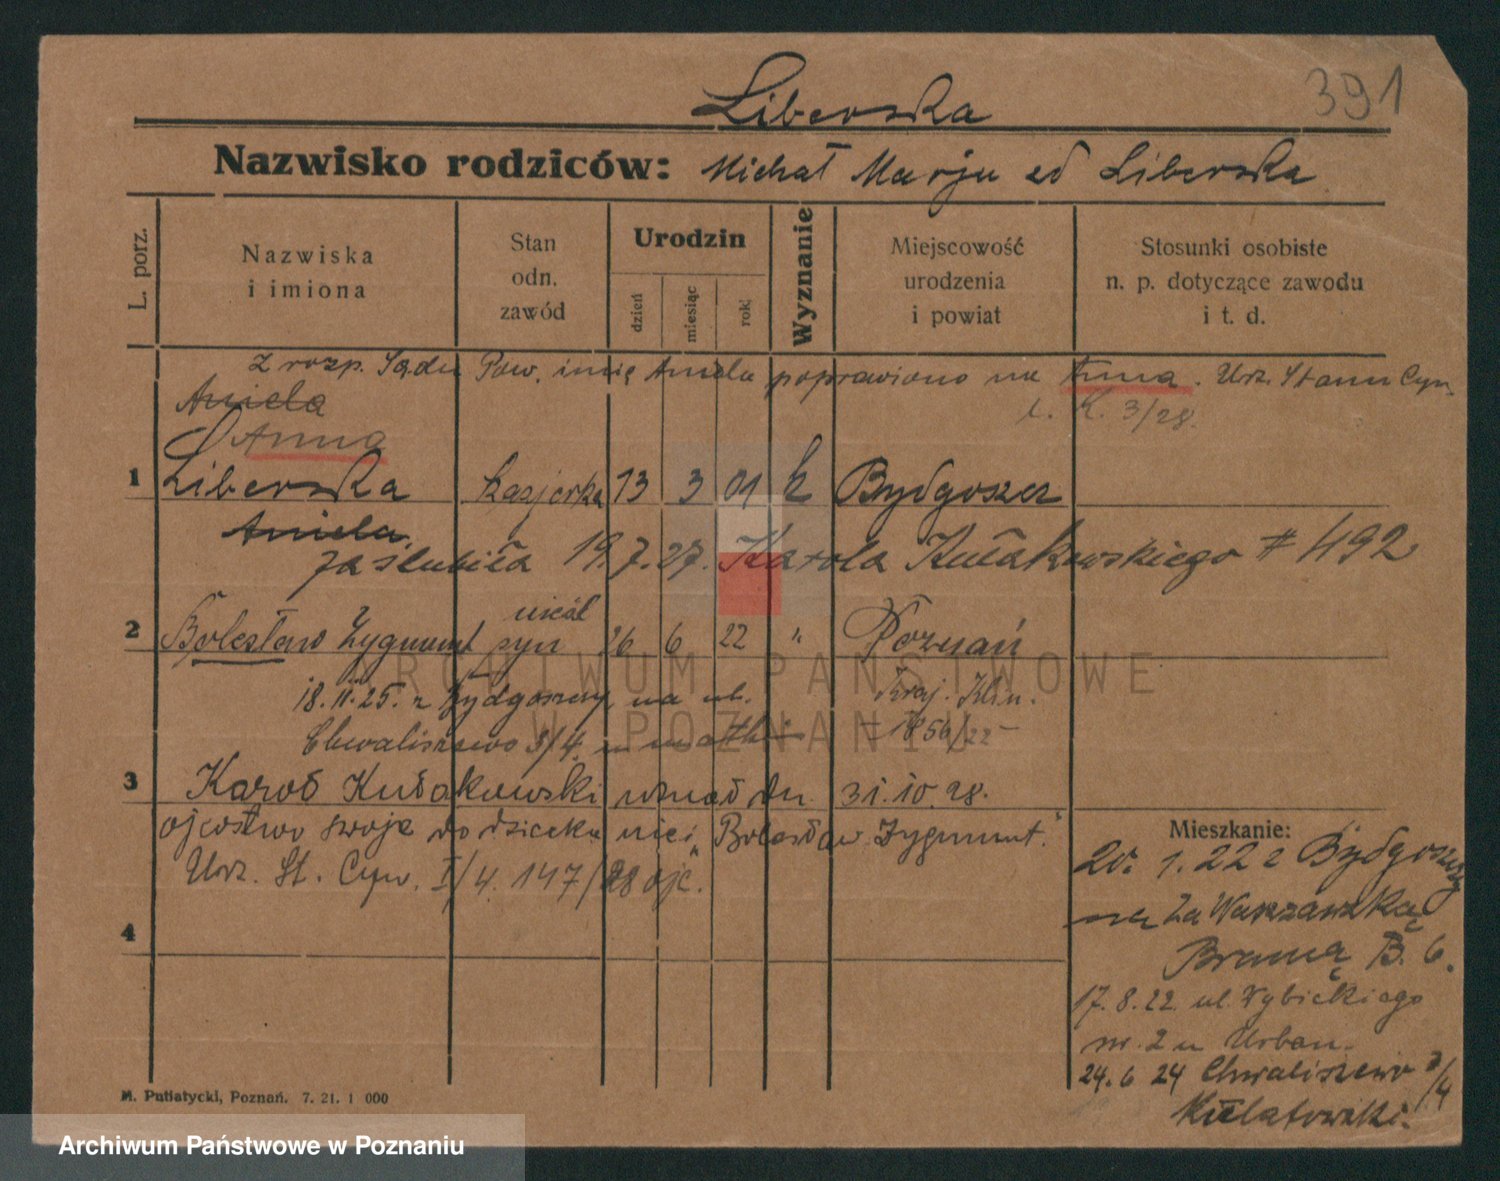 391
Liberska
Nazwisko rodziców: Michał Marju ed Liberska
L. porz.
Nazwiska
i imiona
Stan
odn.
zawód
Urodzin
dzień
miesiąc
rok
Wyznanie
Miejscowość
urodzenia
i powiat
Stosunki osobiste
n. p. dotyczące zawodu
i t. d.
z rozp. Sądu Pow. imię Aniela poprawiono na Anna. Urz. Stanu Cyw.
L. K. 3/28.
Aniela
Anna
1 Liberska kasjerka 13 3 01 k Bydgoszcz
Aniela
zaślubiła 19.7.27. Karola Kułakowskiego # 492
nieśl
2 Bolesław Zygmunt syn 26 6 22 " Poznań
18.11.25. z Bydgoszczy na ul. Kraj. Klin.
Chwaliszewo 3/4. u matki - 1856/22 -
3 Karol Kułakowski uznał dn. 31.10.28.
ojcostwo swoje do dziecka nieś. Bolesław Zygmunt."
Urz. St. Cyw. I/4. 147/28 ojc.
4
Mieszkanie:
20. 1. 22 z Bydgoszczy
na Za Warszawską
Bramą B. 6.
17. 8. 22. ul. Wybickiego
nr. 2 u Urban.
24. 6 24 Chwaliszewo 3/4
M. Putiatycki, Poznań. 7. 21. 1 000
ARCHIWUM PAŃSTWOWE
W POZNANIU
Archiwum Państwowe w Poznaniu